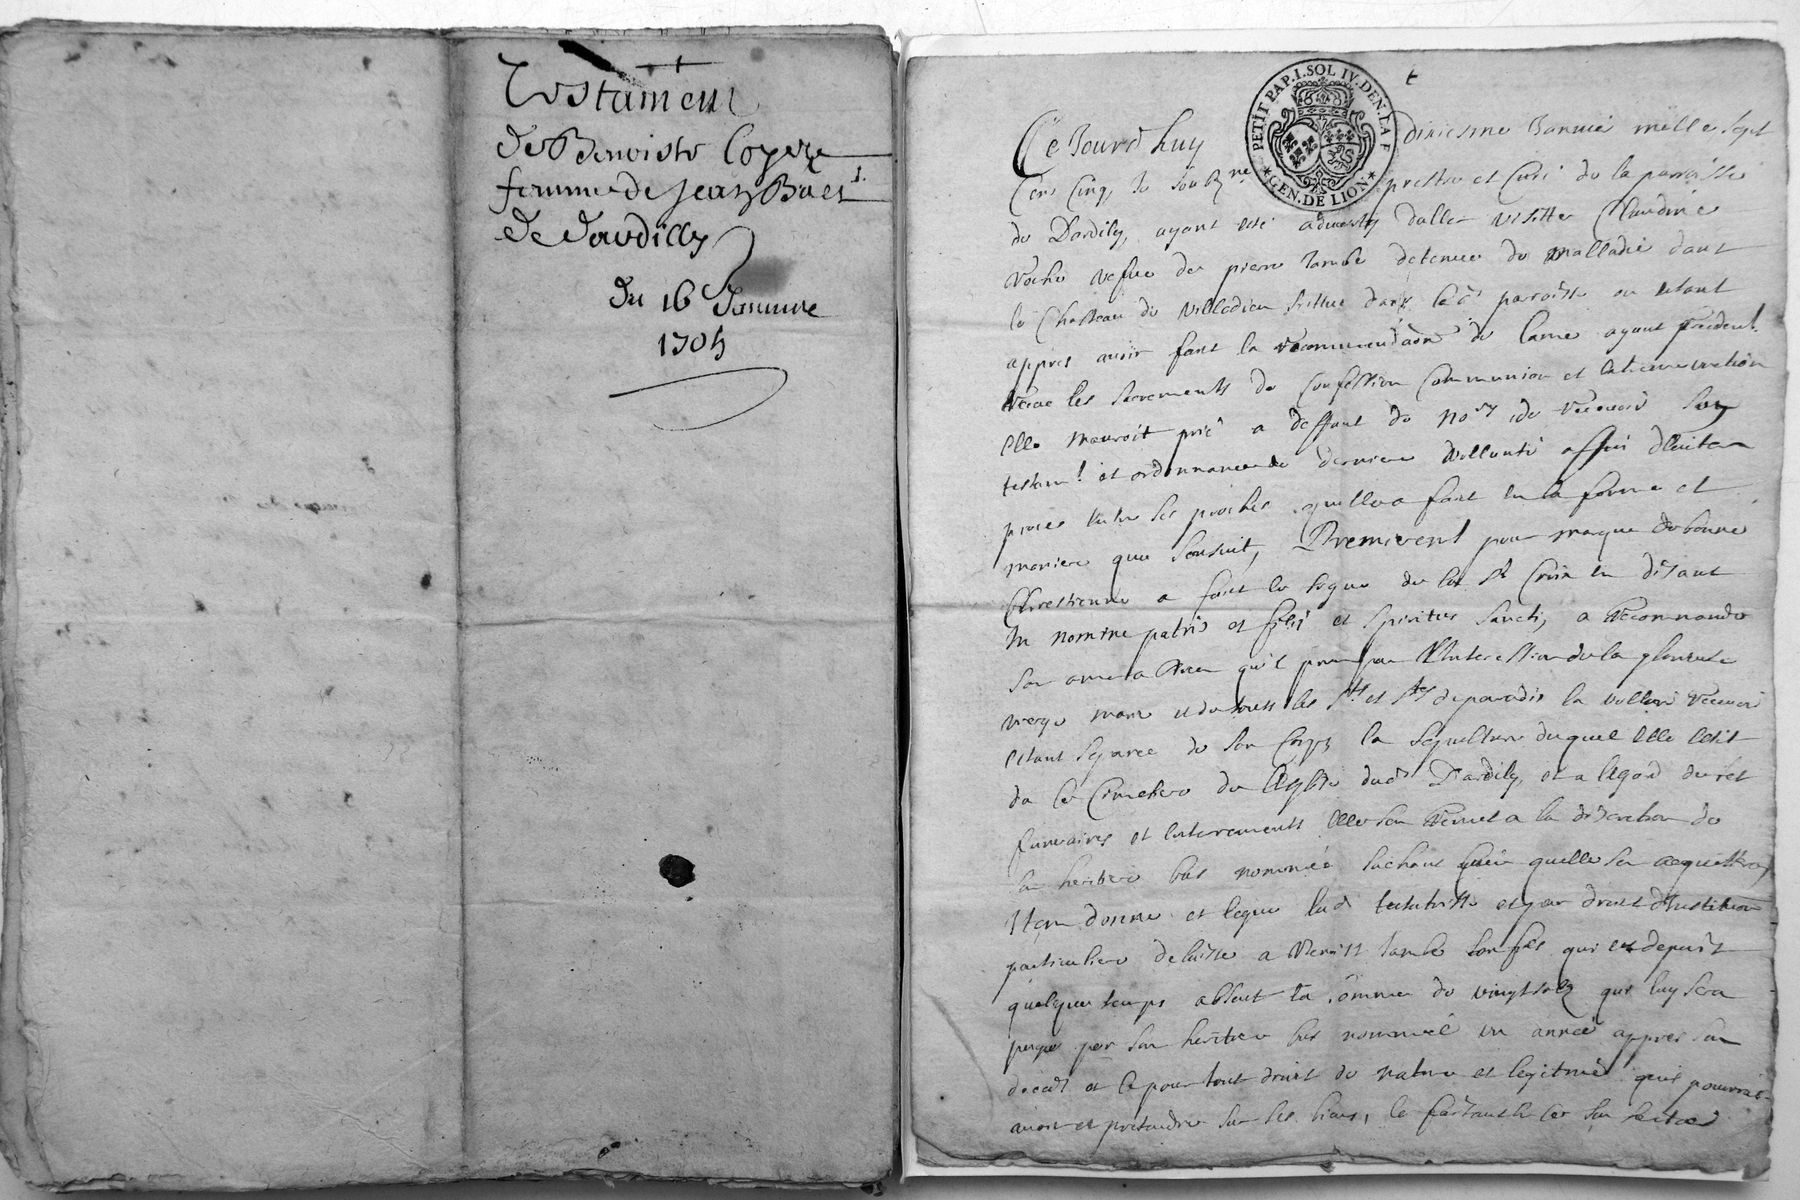 Testament
de Benoiste Coyere
femme de Jean Baes
de dardilly
du 16 Janvier
1705
PETIT PAP. I. SOL IV. DEN. LA F
GEN. DE LION
Ce Jourdhuy dixiesme Janvié mille sept
Cens Cinq, Je soubz.ne prestre et Curé de la parroisse
de Dardily, ayant esté adverty daller visitter Claudine
vefve de pierre detenue de malladie dans
le Chasteau de Villedieu scittué dans parroisse ou estant
appres avoir fait la de lame ayant
les sacrements de Confession Communion et
elle mauroit prié a deffaut de recevoir son
testam.t et ordonnance de derniere vollonté affin d'eviter
proces entre ses proches quelle a fait en la forme et
maniere que sensuit, Premierem.t pour marque de bonne
Chrestienne a fait le signe de la S.te Croix en disant
In nomine patris et filii et spiritus sancti, a recommandé
son ame a Dieu qu'il par l'Intercession de la glorieuse
vierge marie et de touts les S.ts et S.tes de paradis la volloir recevoir
estant separee de son Corps la sepulture duquel elle eslit
Cimetiere de l'eglise dud Dardily, et a l'egard de ses
funeraires et enterements elle sen remet a la discretion de
son heritiere bas nommée sachant bien quelle sen acquittera,
Item donne et legue lad testatrisse et par droit d'Institution
particuliere delaisse a son fils qui est depuis
quelque temps absent la somme de vingt solz qui luy sera
payée par son heritiere bas nommée un année appres son
decés et ce pour tout droit de nature et legitime quil pourroit
avoir et pretendre sur ses biens, le faisant